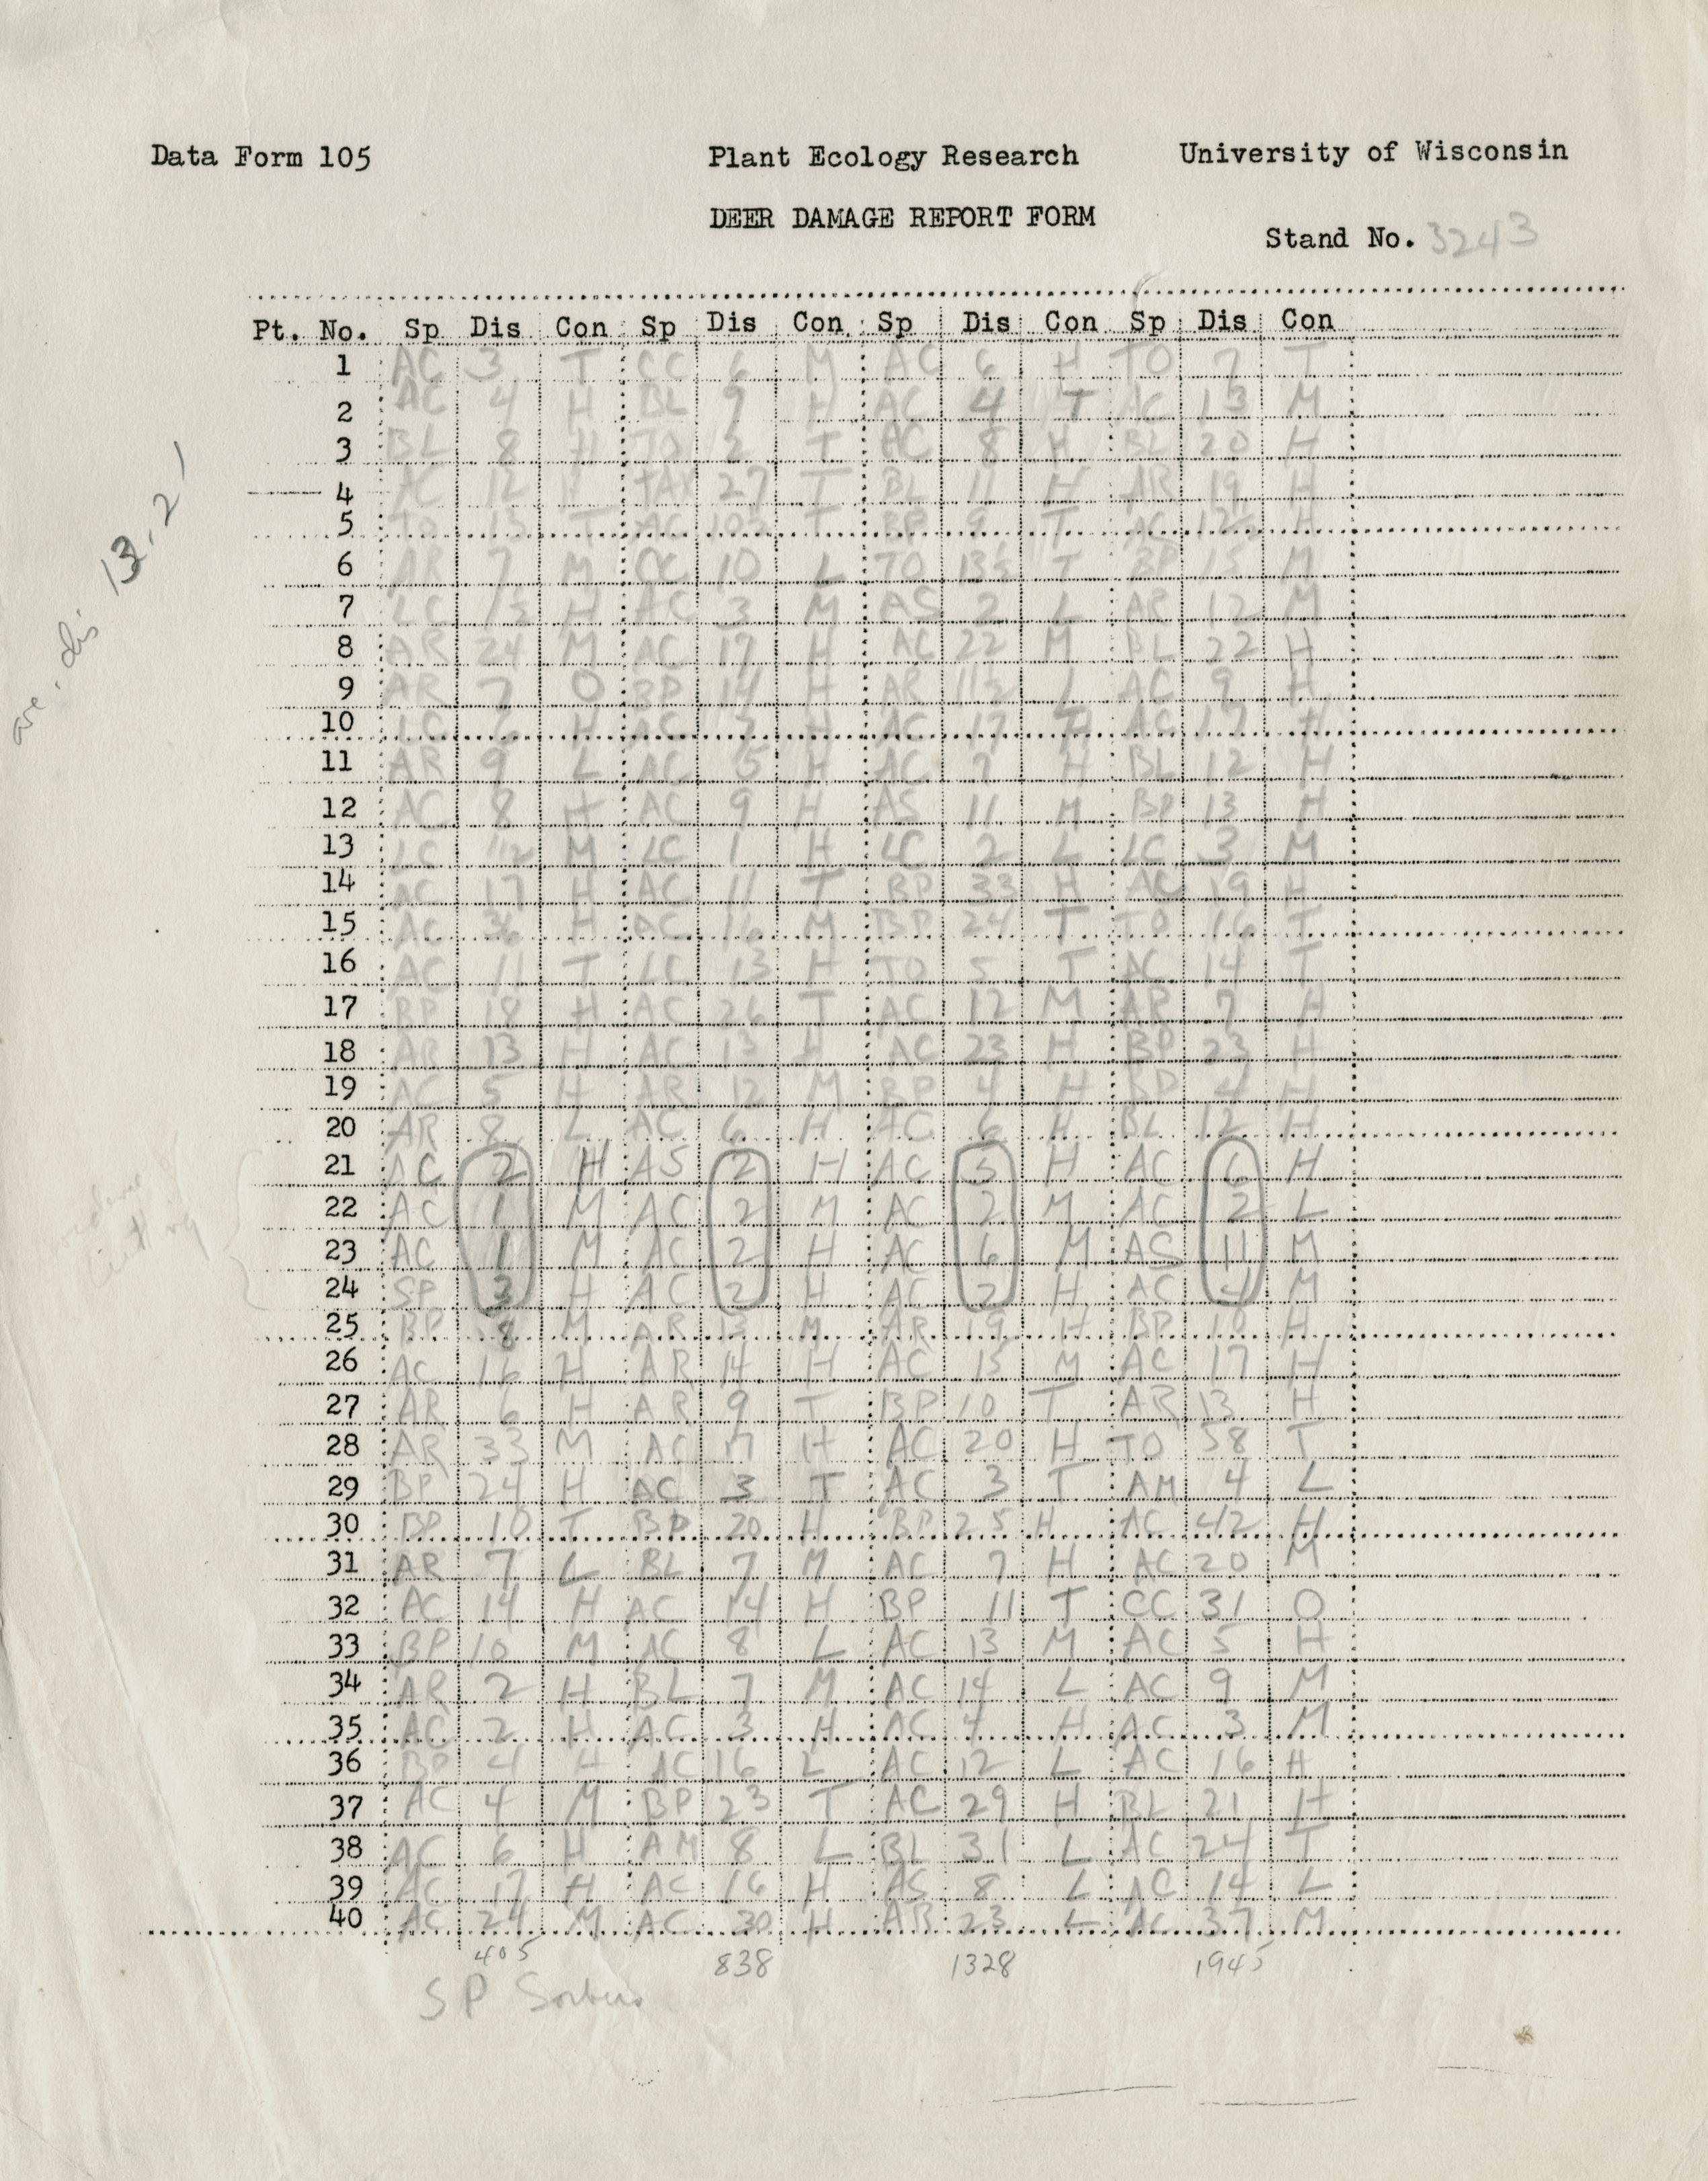 Data Form 105 Plant Ecology Research University of Wisconsin
DEER DAMAGE REPORT FORM
Stand No. 3243
Pt. No. Sp Dis Con Sp Dis Con Sp Dis Con Sp Dis Con
1 AC 3 T CC 6 M AC 6 H TO 7 T
2 AC 4 H BL 9 H AC 4 T AC 13 M
3 BL 8 H TO 2 T AC 8 H BL 20 H
4 AC 12 H 27 T BL 11 H AR 19 H
5 TO 13 T AC T BP 9 T AC H
6 AR 7 M 10 L TO T BP 15 M
7 LC H AC 3 M AS 2 L AR 12 M
8 AR 24 M AC 17 H AC 22 M BL 22 H
9 AR 7 O BP 14 H AR L AC 9 H
10 LC H AC H AC 17 H AC 17 H
11 AR 9 L AC 5 H AC 7 H BL 12 H
12 AC 8 H AC 9 H AS 11 M BP 13 H
13 LC M LC 1 H LC 2 L LC 3 M
14 AC 17 H AC 11 T BP 33 H AC 19 H
15 AC 36 H AC 16 M BP 24 T TO 16 T
16 AC 11 T LC 13 H TO 5 T AC 14 T
17 BP 18 H AC 26 T AC 12 M AR 7 H
18 AR 13 H AC 13 H AC 23 H BP 23 H
19 AC 5 H AR 12 M BP 4 H BP 4 H
20 AR 8 L AC 6 H AC 6 H BL 12 H
21 AC 2 H AS 2 H AC 5 H AC 6 H
22 AC 1 M AC 2 M AC 2 M AC 2 L
23 AC 1 M AC 2 H AC 6 M AS 11 M
24 SP 3 H AC 2 H AC 2 H AC 4 M
25 BP 8 M AR 13 M AR 19 H BP 10 H
26 AC 16 H AR 14 H AC 15 M AC 17 H
27 AR 6 H AR 9 T BP 10 T AR 13 H
28 AR 33 M AC 17 H AC 20 H TO 58 T
29 BP 24 H AC 3 T AC 3 T AM 4 L
30 BP 10 T BP 20 H BP 25 H AC 42 H
31 AR 7 L BL 7 M AC 7 H AC 20 M
32 AC 14 H AC 14 H BP 11 T CC 31 O
33 BP 10 M AC 8 L AC 13 M AC 5 H
34 AR 2 H BL 7 M AC 14 L AC 9 M
35 AC 2 H AC 3 H AC 4 H AC 3 M
36 BP 4 H AC 16 L AC 12 L AC 16 H
37 AC 4 M BP 23 T AC 29 H BL 21 H
38 AC 6 H AM 8 L BL 31 L AC 24 T
39 AC 17 H AC 16 H AS 8 L AC 14 L
40 AC 24 M AC 30 H AR 23 L AC 37 M
405 838 1328 1945
SP Sorbus
ave. dis. 13.21